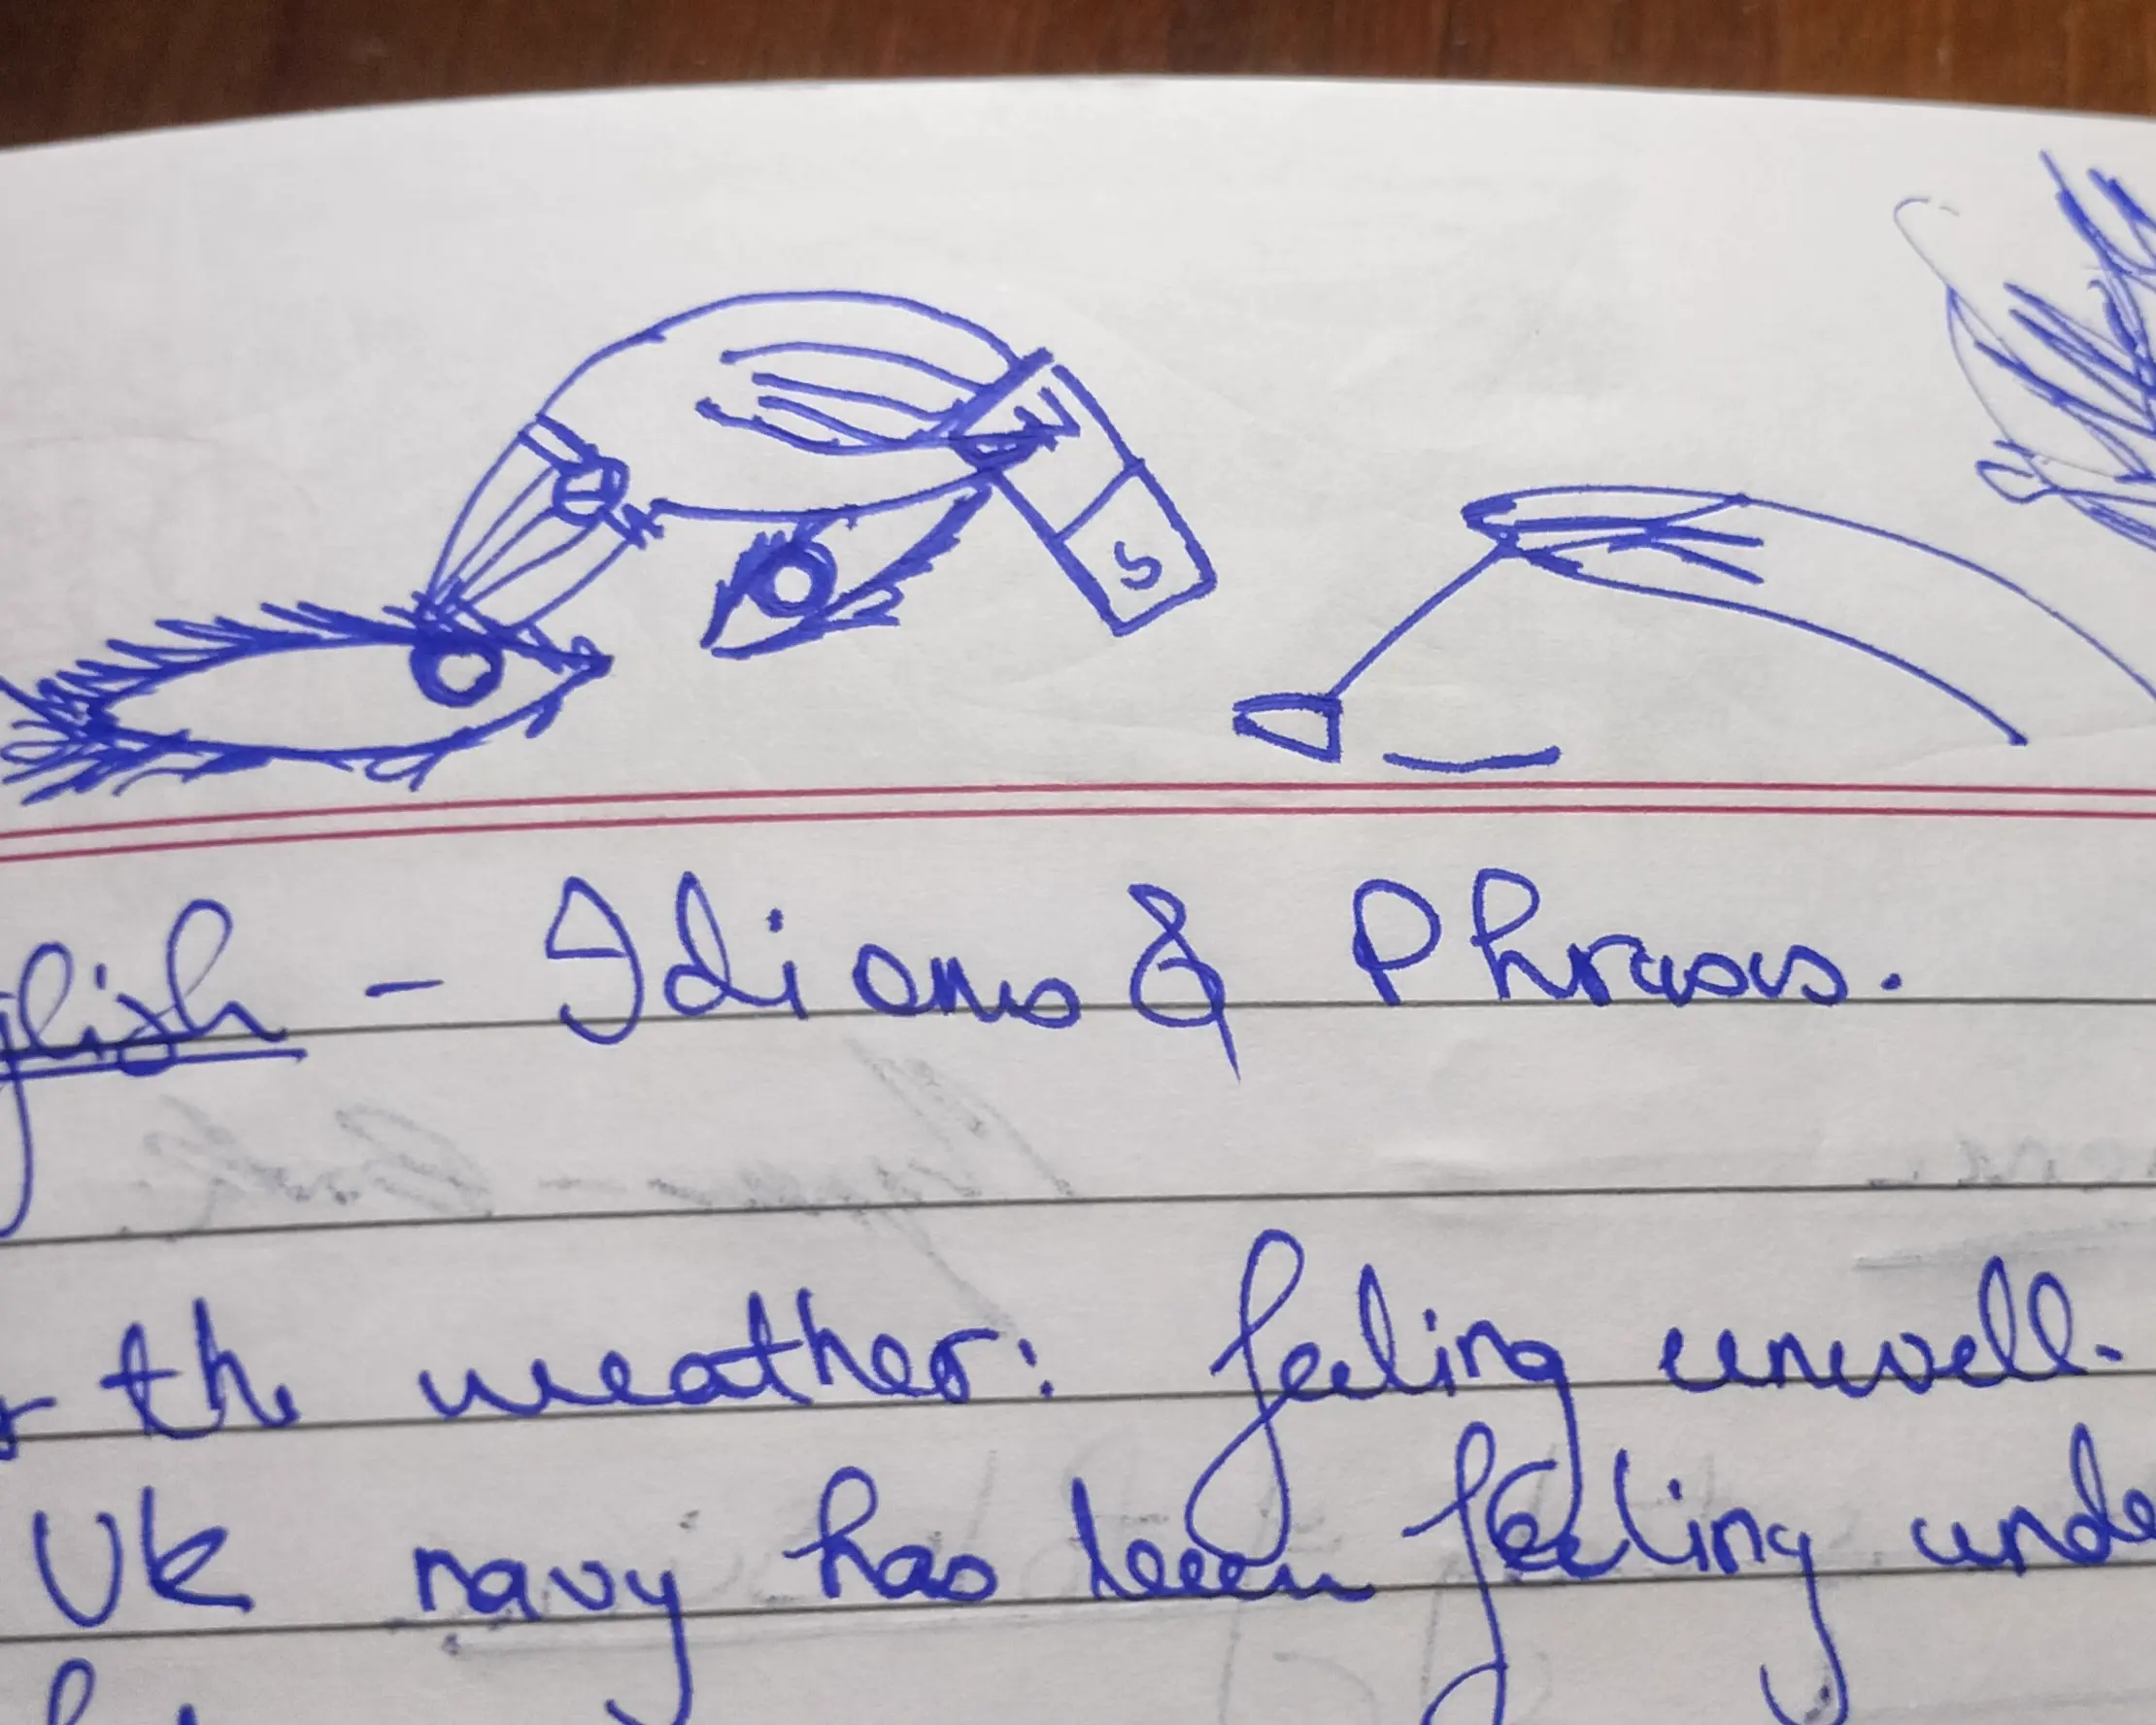 S
glish - Idioms & Phrases.
the weather: feeling unwell.
Uk navy has been feeling unde